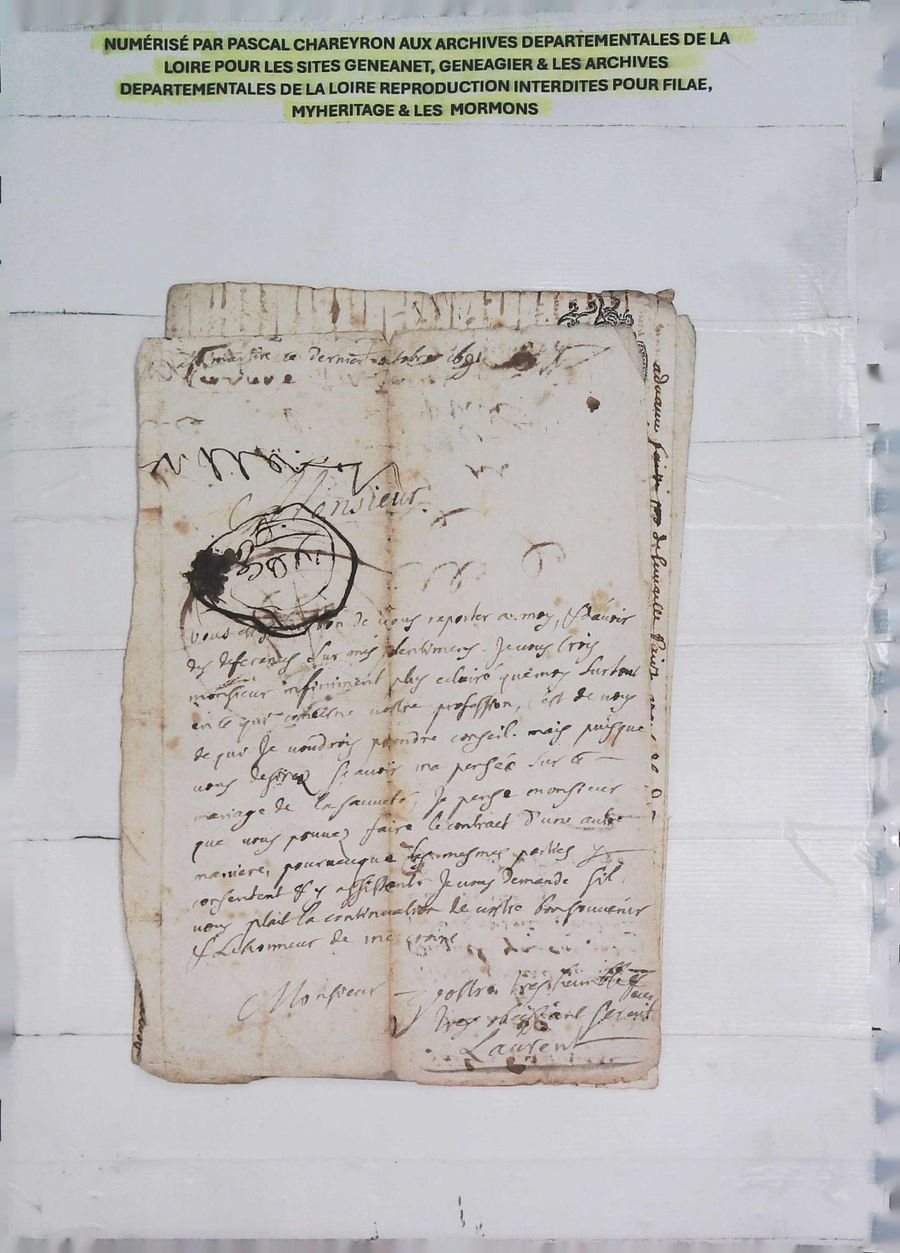 NUMÉRISÉ PAR PASCAL CHAREYRON AUX ARCHIVES DEPARTEMENTALES DE LA
LOIRE POUR LES SITES GENEANET, GENEAGIER & LES ARCHIVES
DEPARTEMENTALES DE LA LOIRE REPRODUCTION INTERDITES POUR FILAE,
MYHERITAGE & LES MORMONS
ce dernier 1691
Monsieur
vous de vous reporter a moy, & davoir
des deferences sur mes sentimens. Je vous crois
monsieur infiniment plus eclairé que moy surtout
en ce qui concerne vostre profession, c'est de vous
de qui Je voudrois prendre conseil. mais puisque
vous desirez scavoir ma pensée sur le
mariage de la sauveté, Je pense monsieur
que vous pouvez faire le contract d'une autre
maniere, pourveuque les mesmes parties y
consentent & y assistent. Je vous demande sil
vous plait la continuation de vostre bon souvenir
& Lehonneur de me croire
Monsieur
vostre tres humble &
tres obeissant
Laurent